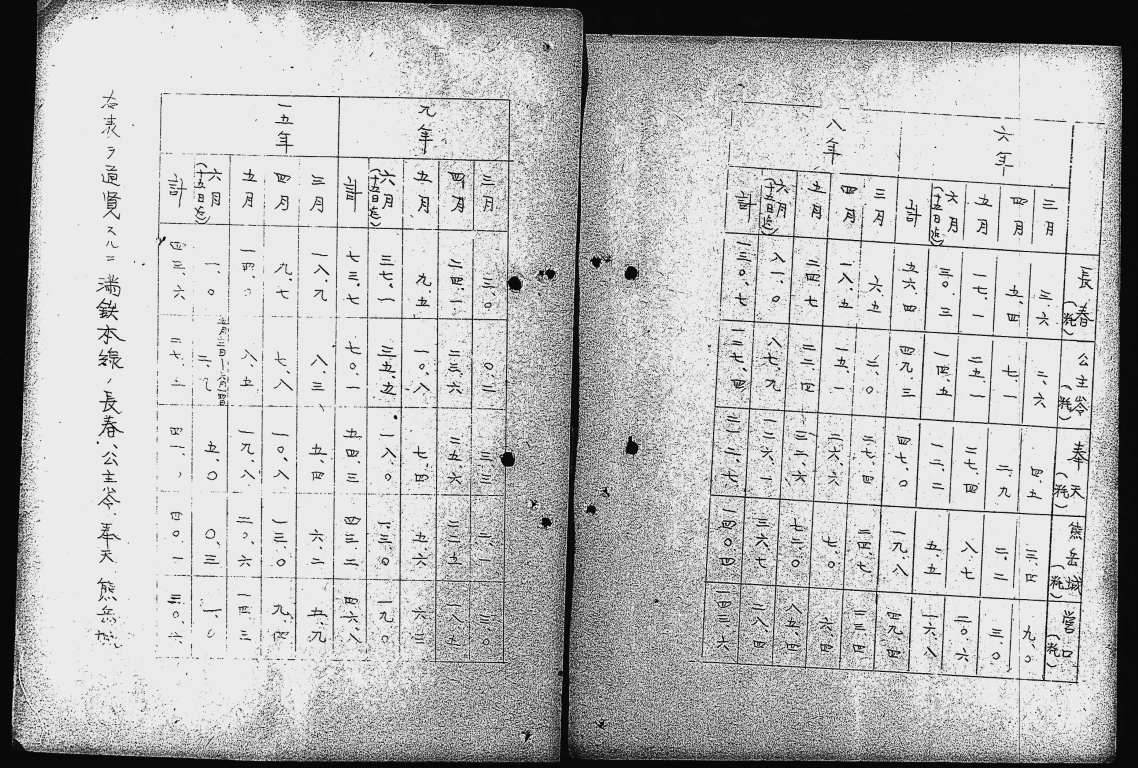 長春(粍) 公主岺(粍) 奉天(粍) 熊岳城(粍) 營口(粍)
六年
三月 三、六 二、六 四、五 三、四 九、〇
四月 五、四 七、一 二、九 二、二 三、〇
五月 一七、一 二五、一 二七、四 八、七 二〇、六
六月(十五日迄) 三〇、三 一四、五 一二、二 五、五 一六、八
計 五六、四 四九、三 四七、〇 一九、八 四九、四
八年
三月 六、五 二、〇 二七、四 二四、七 二三、四
四月 一八、五 一五、一 二六、六 七、〇 六、四
五月 二四、七 二二、四 三二、六 七二、〇 八五、四
六月(十五日迄) 八一、〇 八七、九 一二六、一 三六、七 二八、四
計 一三〇、七 一二七、四 二一二、七 一四〇、四 一四三、六
九年
三月 三、〇 〇、二 三、三 二、一 三、〇
四月 二四、一 二三、六 二五、六 二二、五 一八、五
五月 九、五 一〇、八 七、四 五、六 六、三
六月(十五日迄) 三七、一 三五、五 一八、〇 一三、〇 一九、〇
計 七三、七 七〇、一 五四、三 四三、二 四六、八
一五年
三月 一八、九 八、三 五、四 六、二 五、九
四月 九、七 七、八 一〇、八 一三、〇 九、四
五月 一四、〇 八、五 一九、八 二〇、六 一四、三
六月(十五日迄) 一、〇 二、七 五、〇 〇、三 一、〇
計 四三、六 二七、三 四一、 四〇、一 三〇、六
右表ヲ通賢スルニ満鉄本線ノ長春、公主岺、奉天 熊岳城、